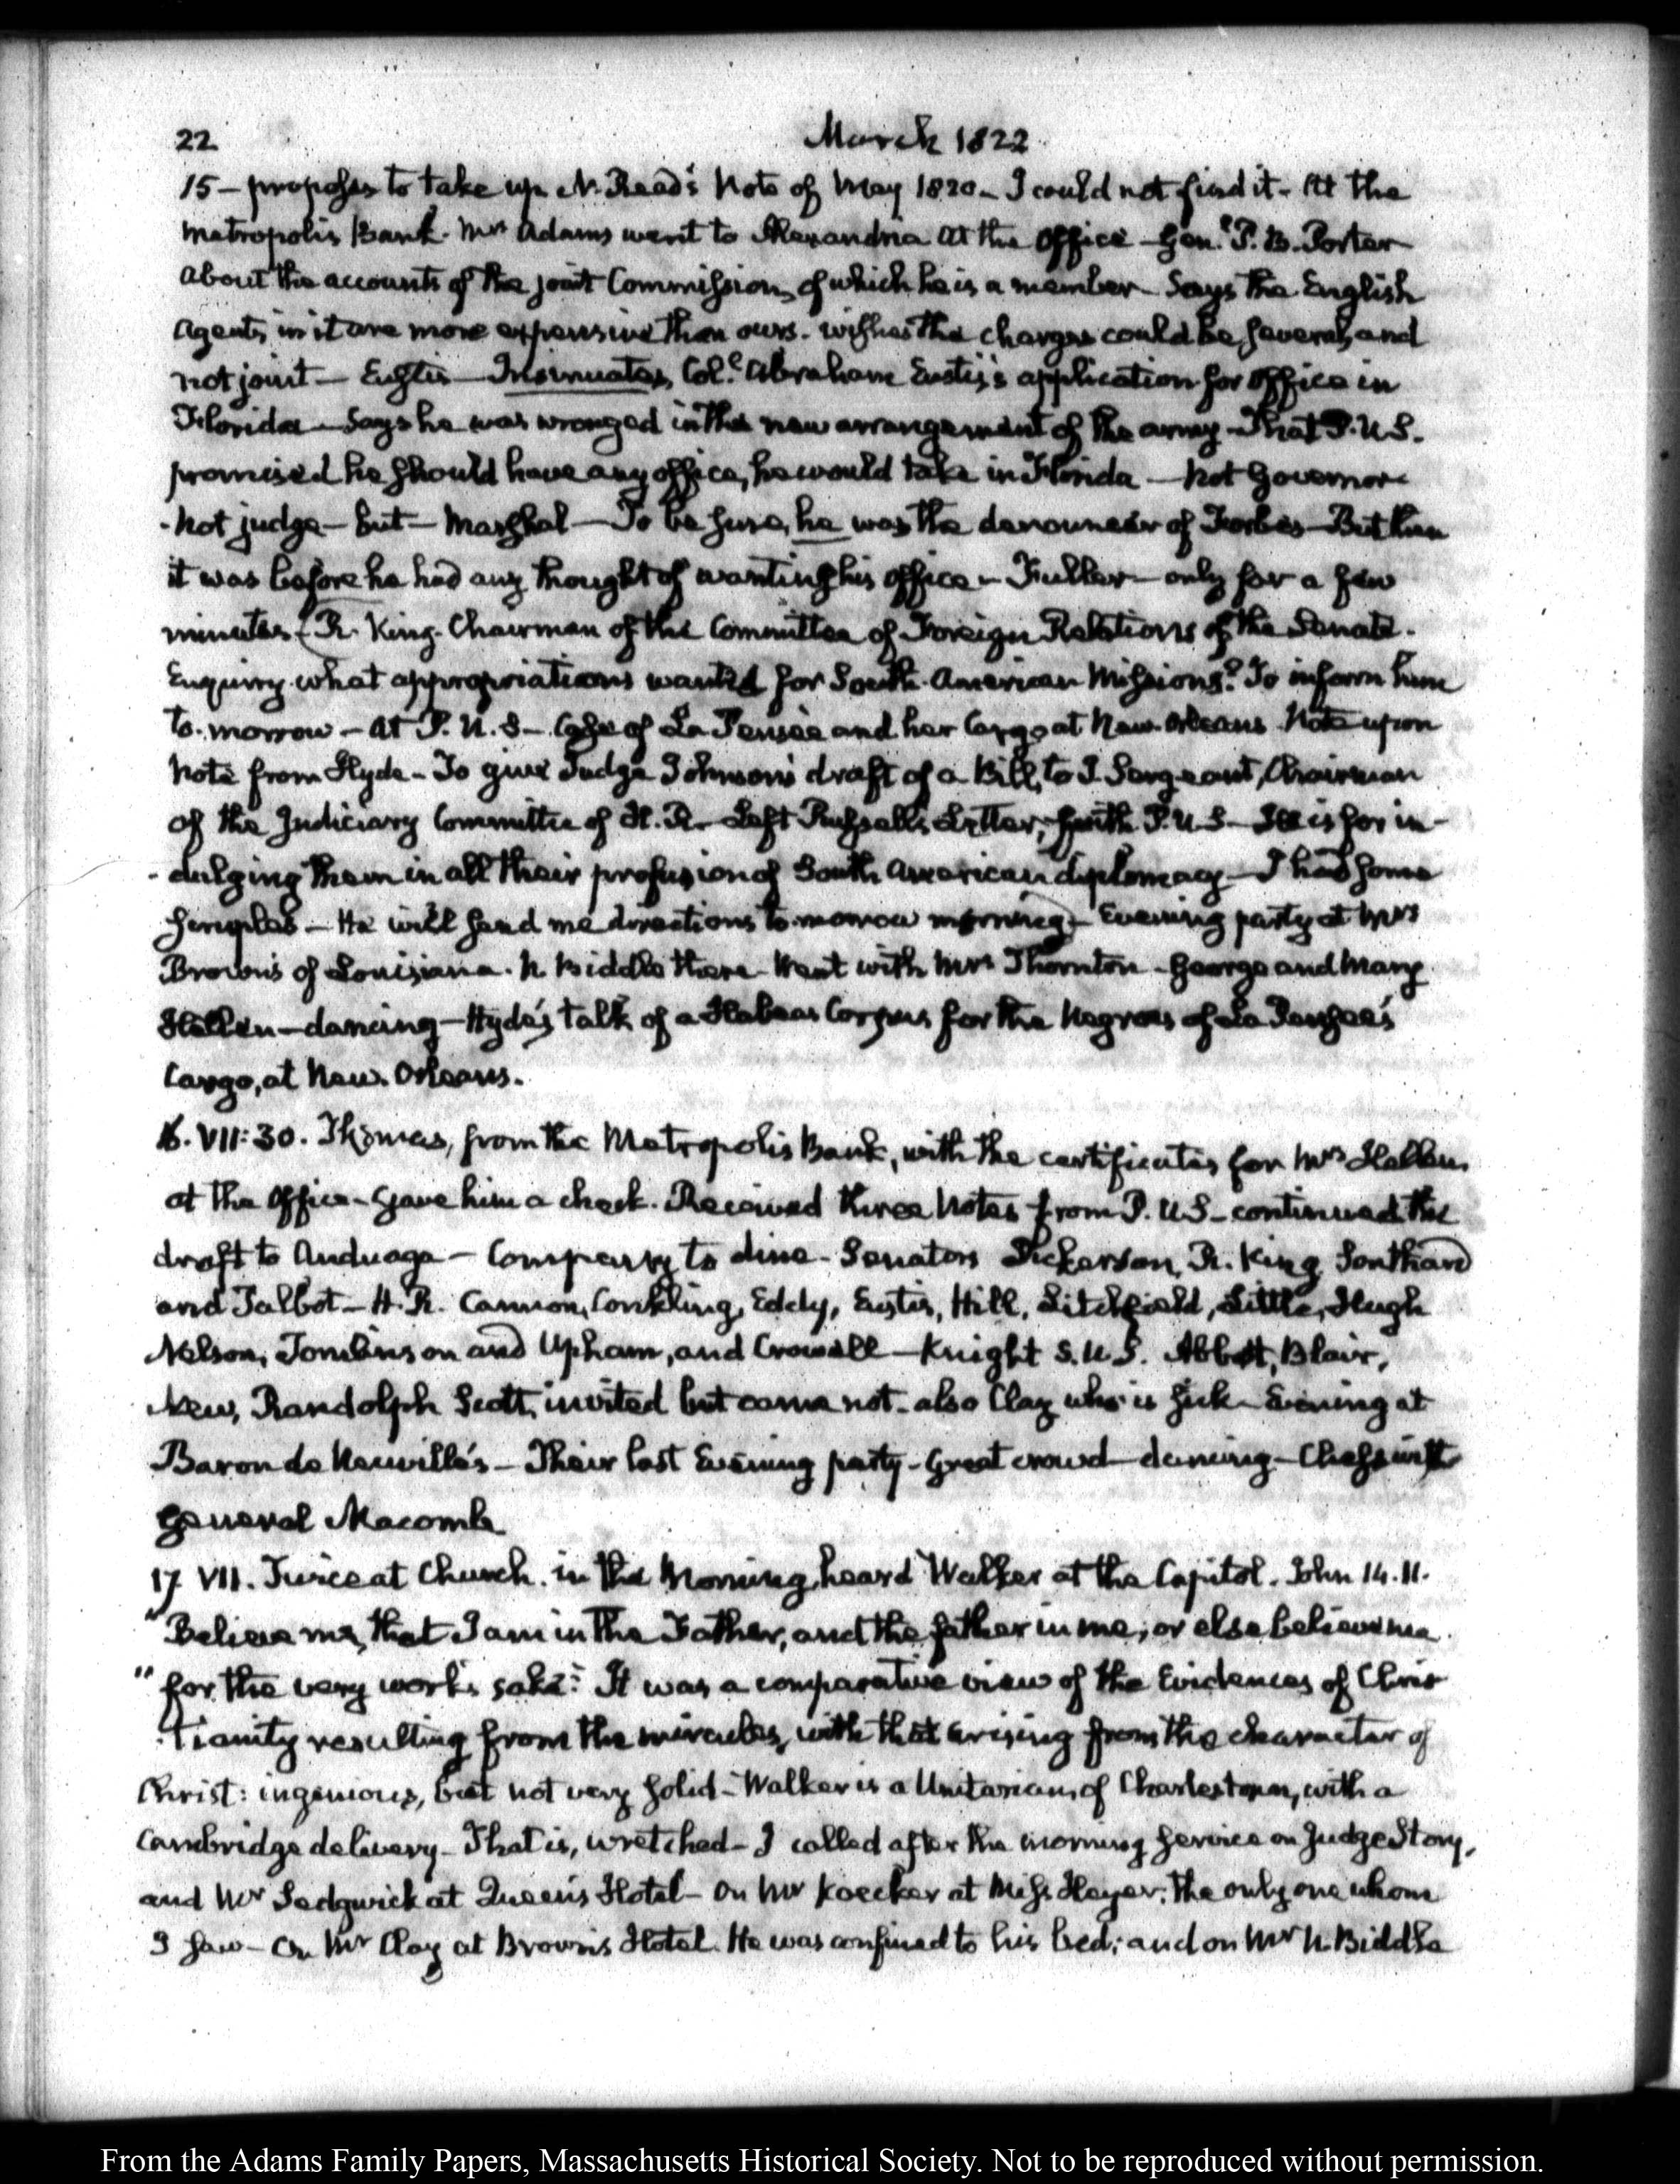 22
March 1822
15 – proposes to take up N. Read's Note of May 1820 – I could not find it – At the
Metropolis Bank. Mrs Adams went to Alexandria At the Office – Genl. P. B. Porter
about the accounts of the joint Commission, of which he is a member – Says the English
Agents in it are more expensive than ours. wishes the charges could be several, and
not joint – Eustis – Insinuates, Coll. Abraham Eustis's application for Office in
Florida – Says he was wronged in the new arrangement of the army – That P. U. S.
promised he should have any office, he would take in Florida – Not Governor
- Not judge – but – Marshal – To be sure, he was the denouncer of Forbes – But then
it was before he had any thought of wanting his office – Fuller – only for a few
minutes. (R. King. Chairman of the Committee of Foreign Relations of the Senate.
Enquiry what appropriations wanted for South-American Missions? To inform him
to-morrow – At P. U. S – Case of La Pensée and her Cargo at New-Orleans Note upon
Note from Hyde – To give Judge Johnson's draft of a Bill, to J. Sergeant, Chairman
of the Judiciary Committee of H. R. – Left Russell's Letter, with P. U. S – He is for in-
-dulging them in all their profusion of South American diplomacy – I had some
scruples – He will send me directions to-morrow morning) – Evening party at Mrs
Brown's of Louisiana. N. Biddle there – Went with Mrs Thornton – George and Mary
Hellen – dancing – Hyde's talk of a Habeas Corpus for the Negroes of La Pensée's
Cargo, at New-Orleans.
16. VII:30. Thomas, from the Metropolis Bank, with the certificates for Mrs Hellen,
at the Office – Gave him a check. Received three Notes from P. U. S – continued the
draft to Anduaga – Company to dine – Senators Dickerson, R. King Southard
and Talbot – H. R. Cannon, Conkling, Eddy, Eustis, Hill, Litchfield, Little, Hugh
Nelson, Tomlinson and Upham, and Crowell – Knight S. U. S. Abbot, Blair,
New, Randolph Scott, invited but came not – also Clay who is sick – Evening at
Baron de Neuville's – Their last Evening party – Great crowd – dancing – Chess with
General Macomb
17. VII. Twice at Church. in the Morning, heard Walker at the Capitol. John 14. 11.
"Believe me, that I am in the Father, and the father in me; or else believe me
"for the very works sake." It was a comparative view of the Evidences of Chris
-tianity resulting from the miracles, with that arising from the character of
Christ: ingenious, but not very solid – Walker is a Unitarian, of Charlestown, with a
Cambridge delivery – That is, wretched – I called after the morning service on Judge Story,
and Mr Sedgwick at Queen's Hotel – On Mr Koecker at Miss Heyer; the only one whom
I saw – On Mr Clay at Brown's Hotel. He was confined to his bed; and on Mr N. Biddle
From the Adams Family Papers, Massachusetts Historical Society. Not to be reproduced without permission.